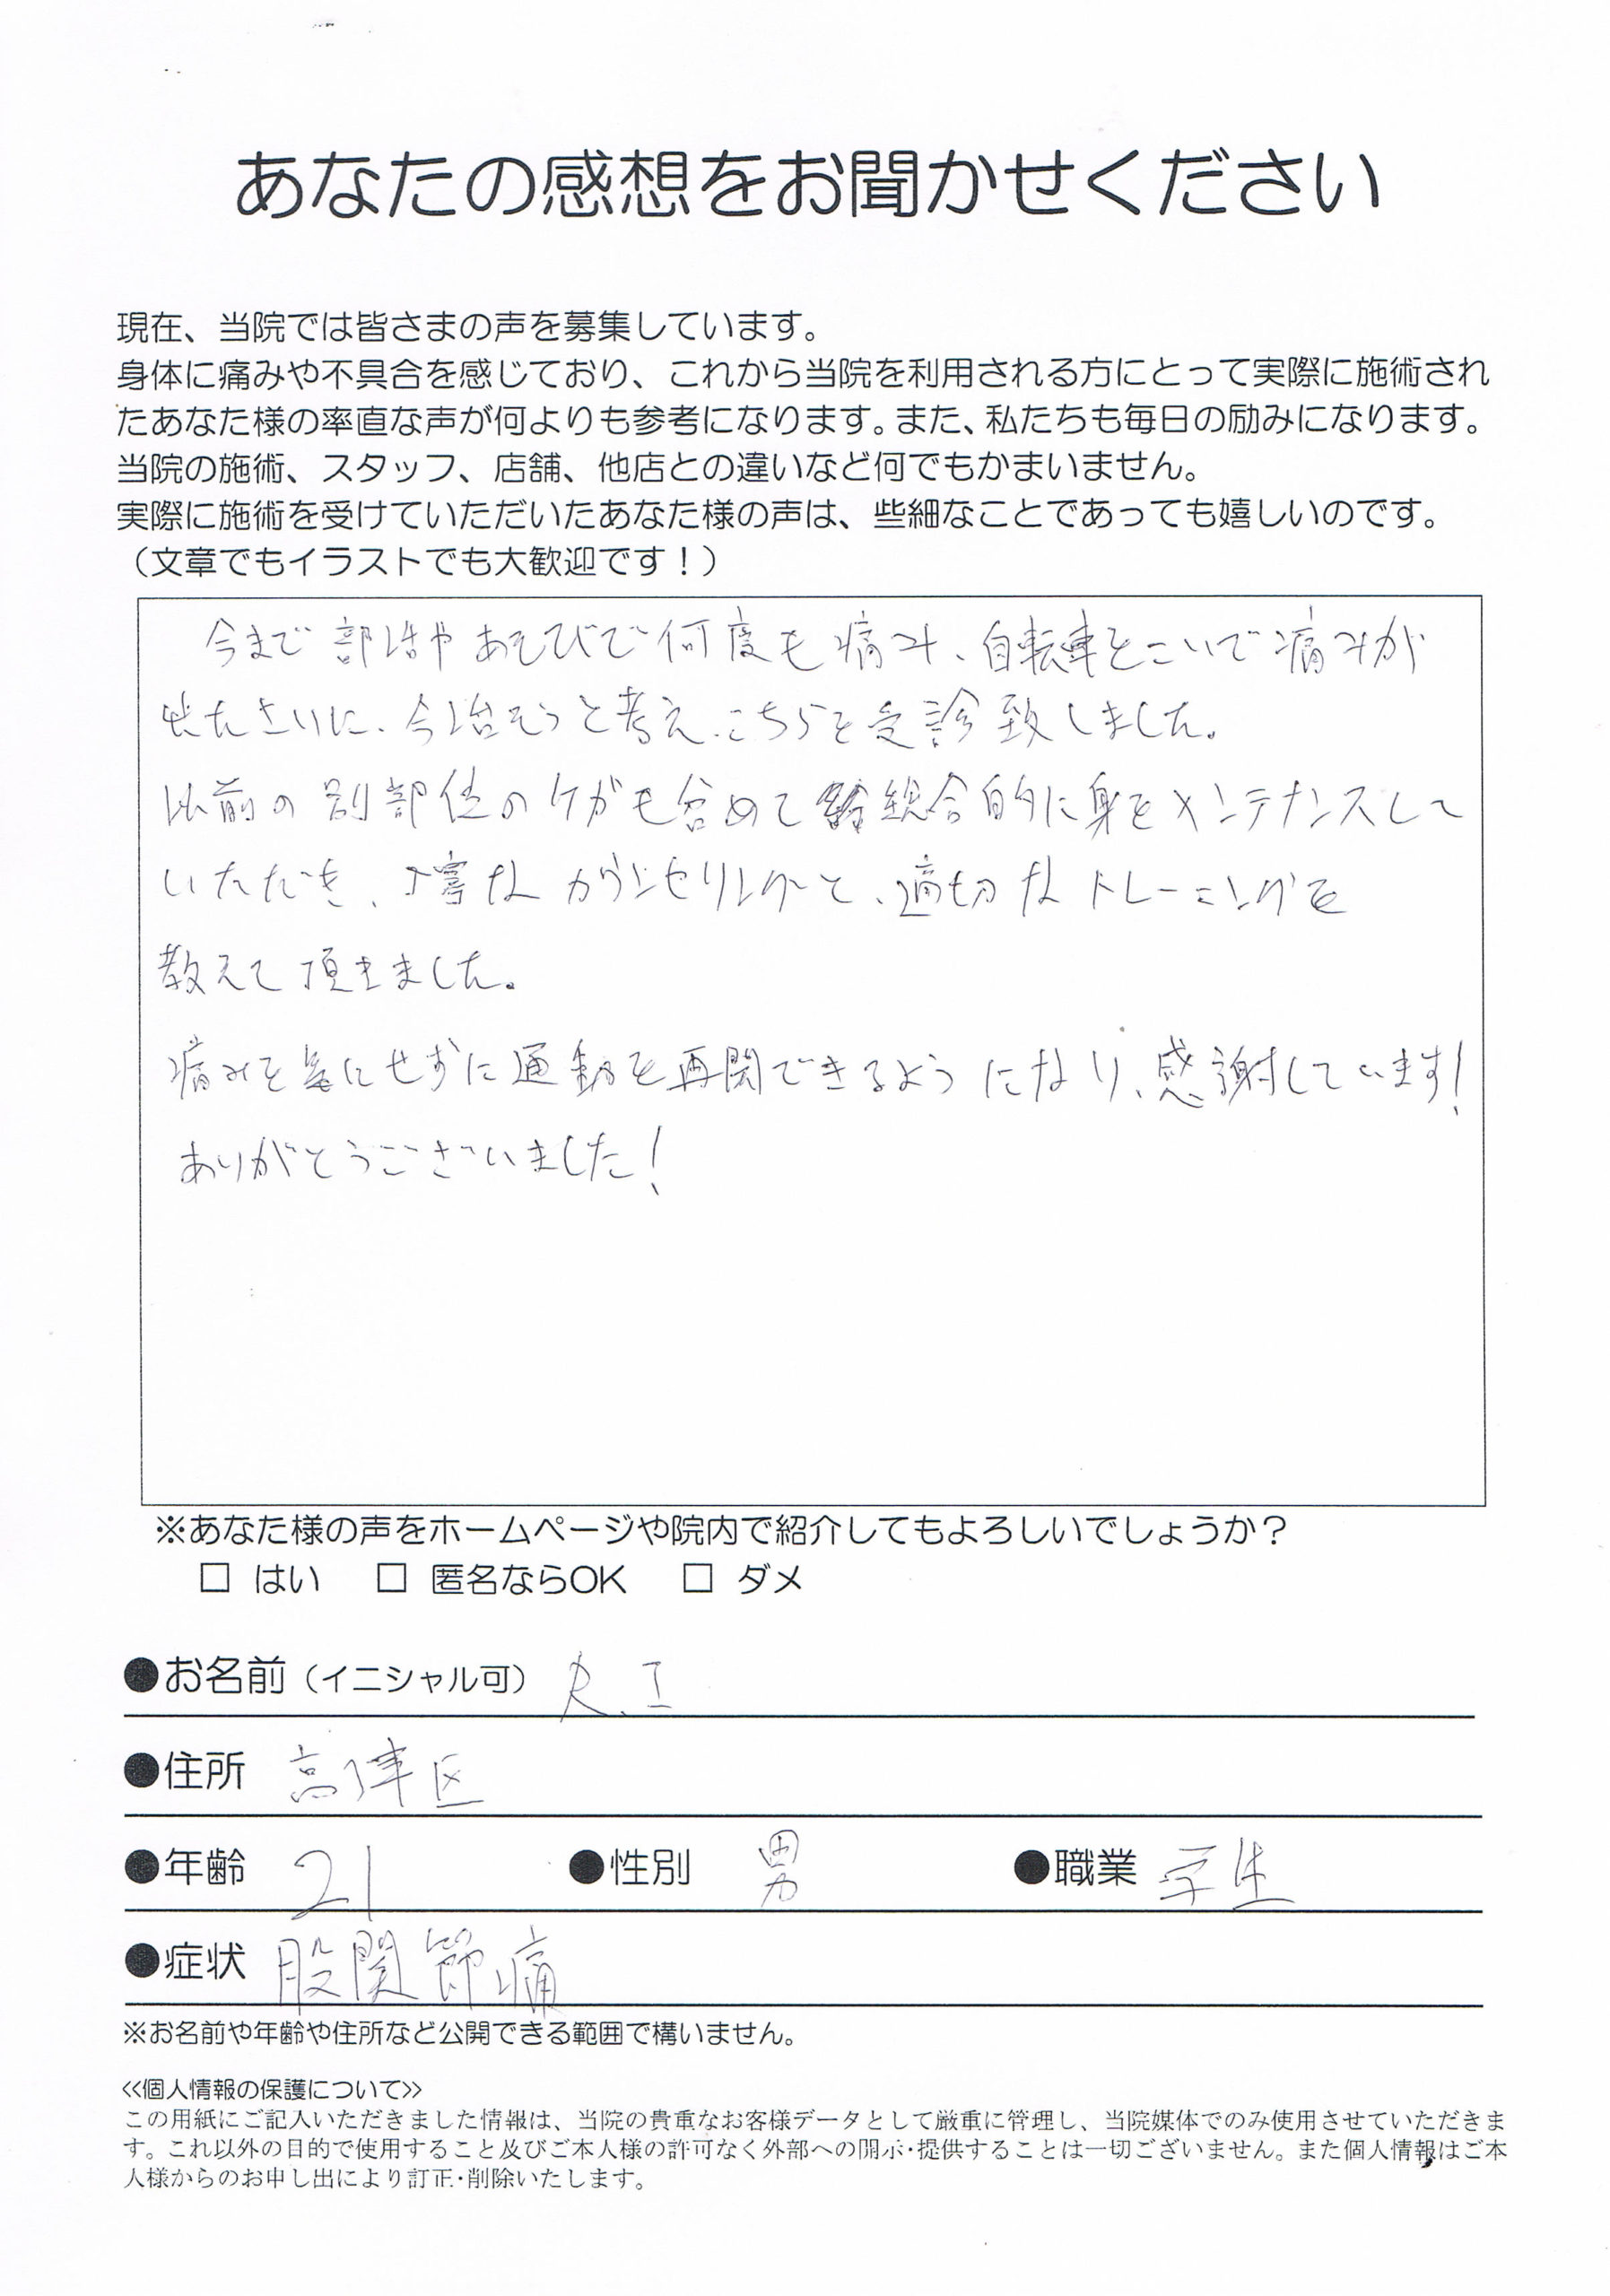 あなたの感想をお聞かせください
現在、当院では皆さまの声を募集しています。
身体に痛みや不具合を感じており、これから当院を利用される方にとって実際に施術され
たあなた様の率直な声が何よりも参考になります。また、私たちも毎日の励みになります。
当院の施術、スタッフ、店舗、他店との違いなど何でもかまいません。
実際に施術を受けていただいたあなた様の声は、些細なことであっても嬉しいのです。
（文章でもイラストでも大歓迎です！）
今まで部活やあそびで何度も痛み、自転車をこいで痛みが
出たさいに、今治そうと考え、こちらを受診致しました。
以前の別部位のケガも含めて総合的に身をメンテナンスして
いただき、丁寧なカウンセリングと、適切なトレーニングを
教えて頂きました。
痛みを気にせずに運動を再開できるようになり、感謝しています！
ありがとうございました！
※あなた様の声をホームページや院内で紹介してもよろしいでしょうか？
□ はい □ 匿名ならOK □ ダメ
●お名前（イニシャル可） R.I
●住所 高津区
●年齢 21 ●性別 男 ●職業 学生
●症状 股関節痛
※お名前や年齢や住所など公開できる範囲で構いません。
≪個人情報の保護について≫
この用紙にご記入いただきました情報は、当院の貴重なお客様データとして厳重に管理し、当院媒体でのみ使用させていただきま
す。これ以外の目的で使用すること及びご本人様の許可なく外部への開示・提供することは一切ございません。また個人情報はご本
人様からのお申し出により訂正・削除いたします。